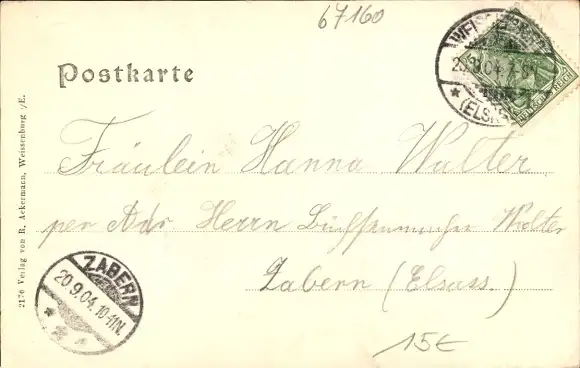 67160
WEISSENBURG
20.9.04.7-8V.
* (ELSASS)
DEUTSCHES REICH
Postkarte
Fräulein Hanna Walter
per Adr. Herrn Büchsenmacher Walter
Zabern (Elsass.)
ZABERN
20.9.04.10-11N.
15€
2176 Verlag von R. Ackermann, Weissenburg i/E.